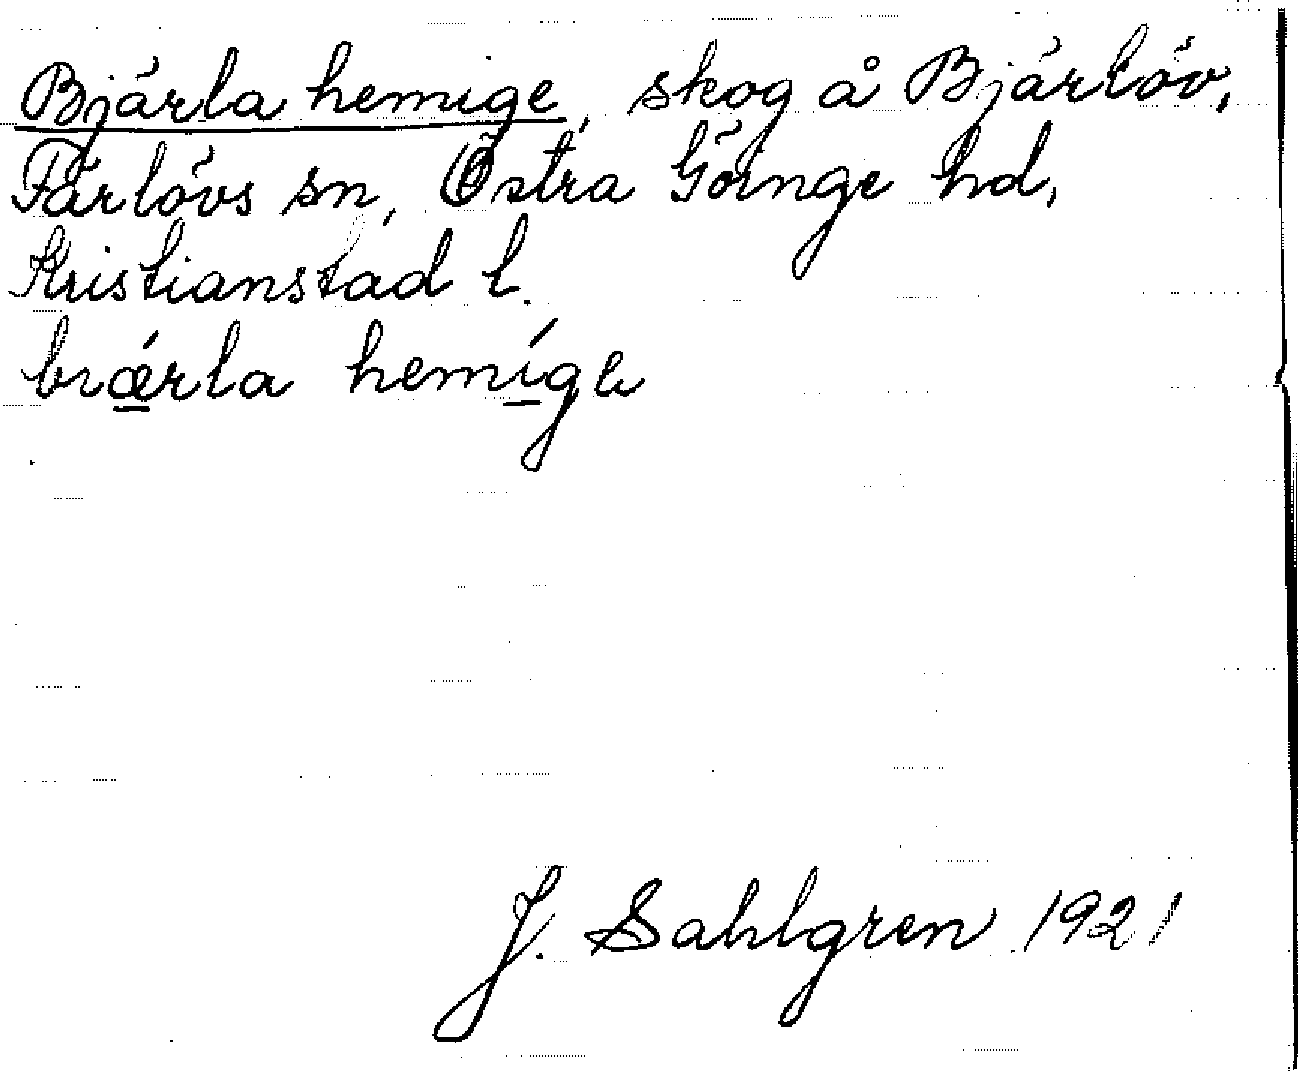 Bjärla hemige, skog å Bjärlöv,
Färlövs sn, Östra Göinge hd,
Kristianstad l.
hemíge
J. Sahlgren 1921